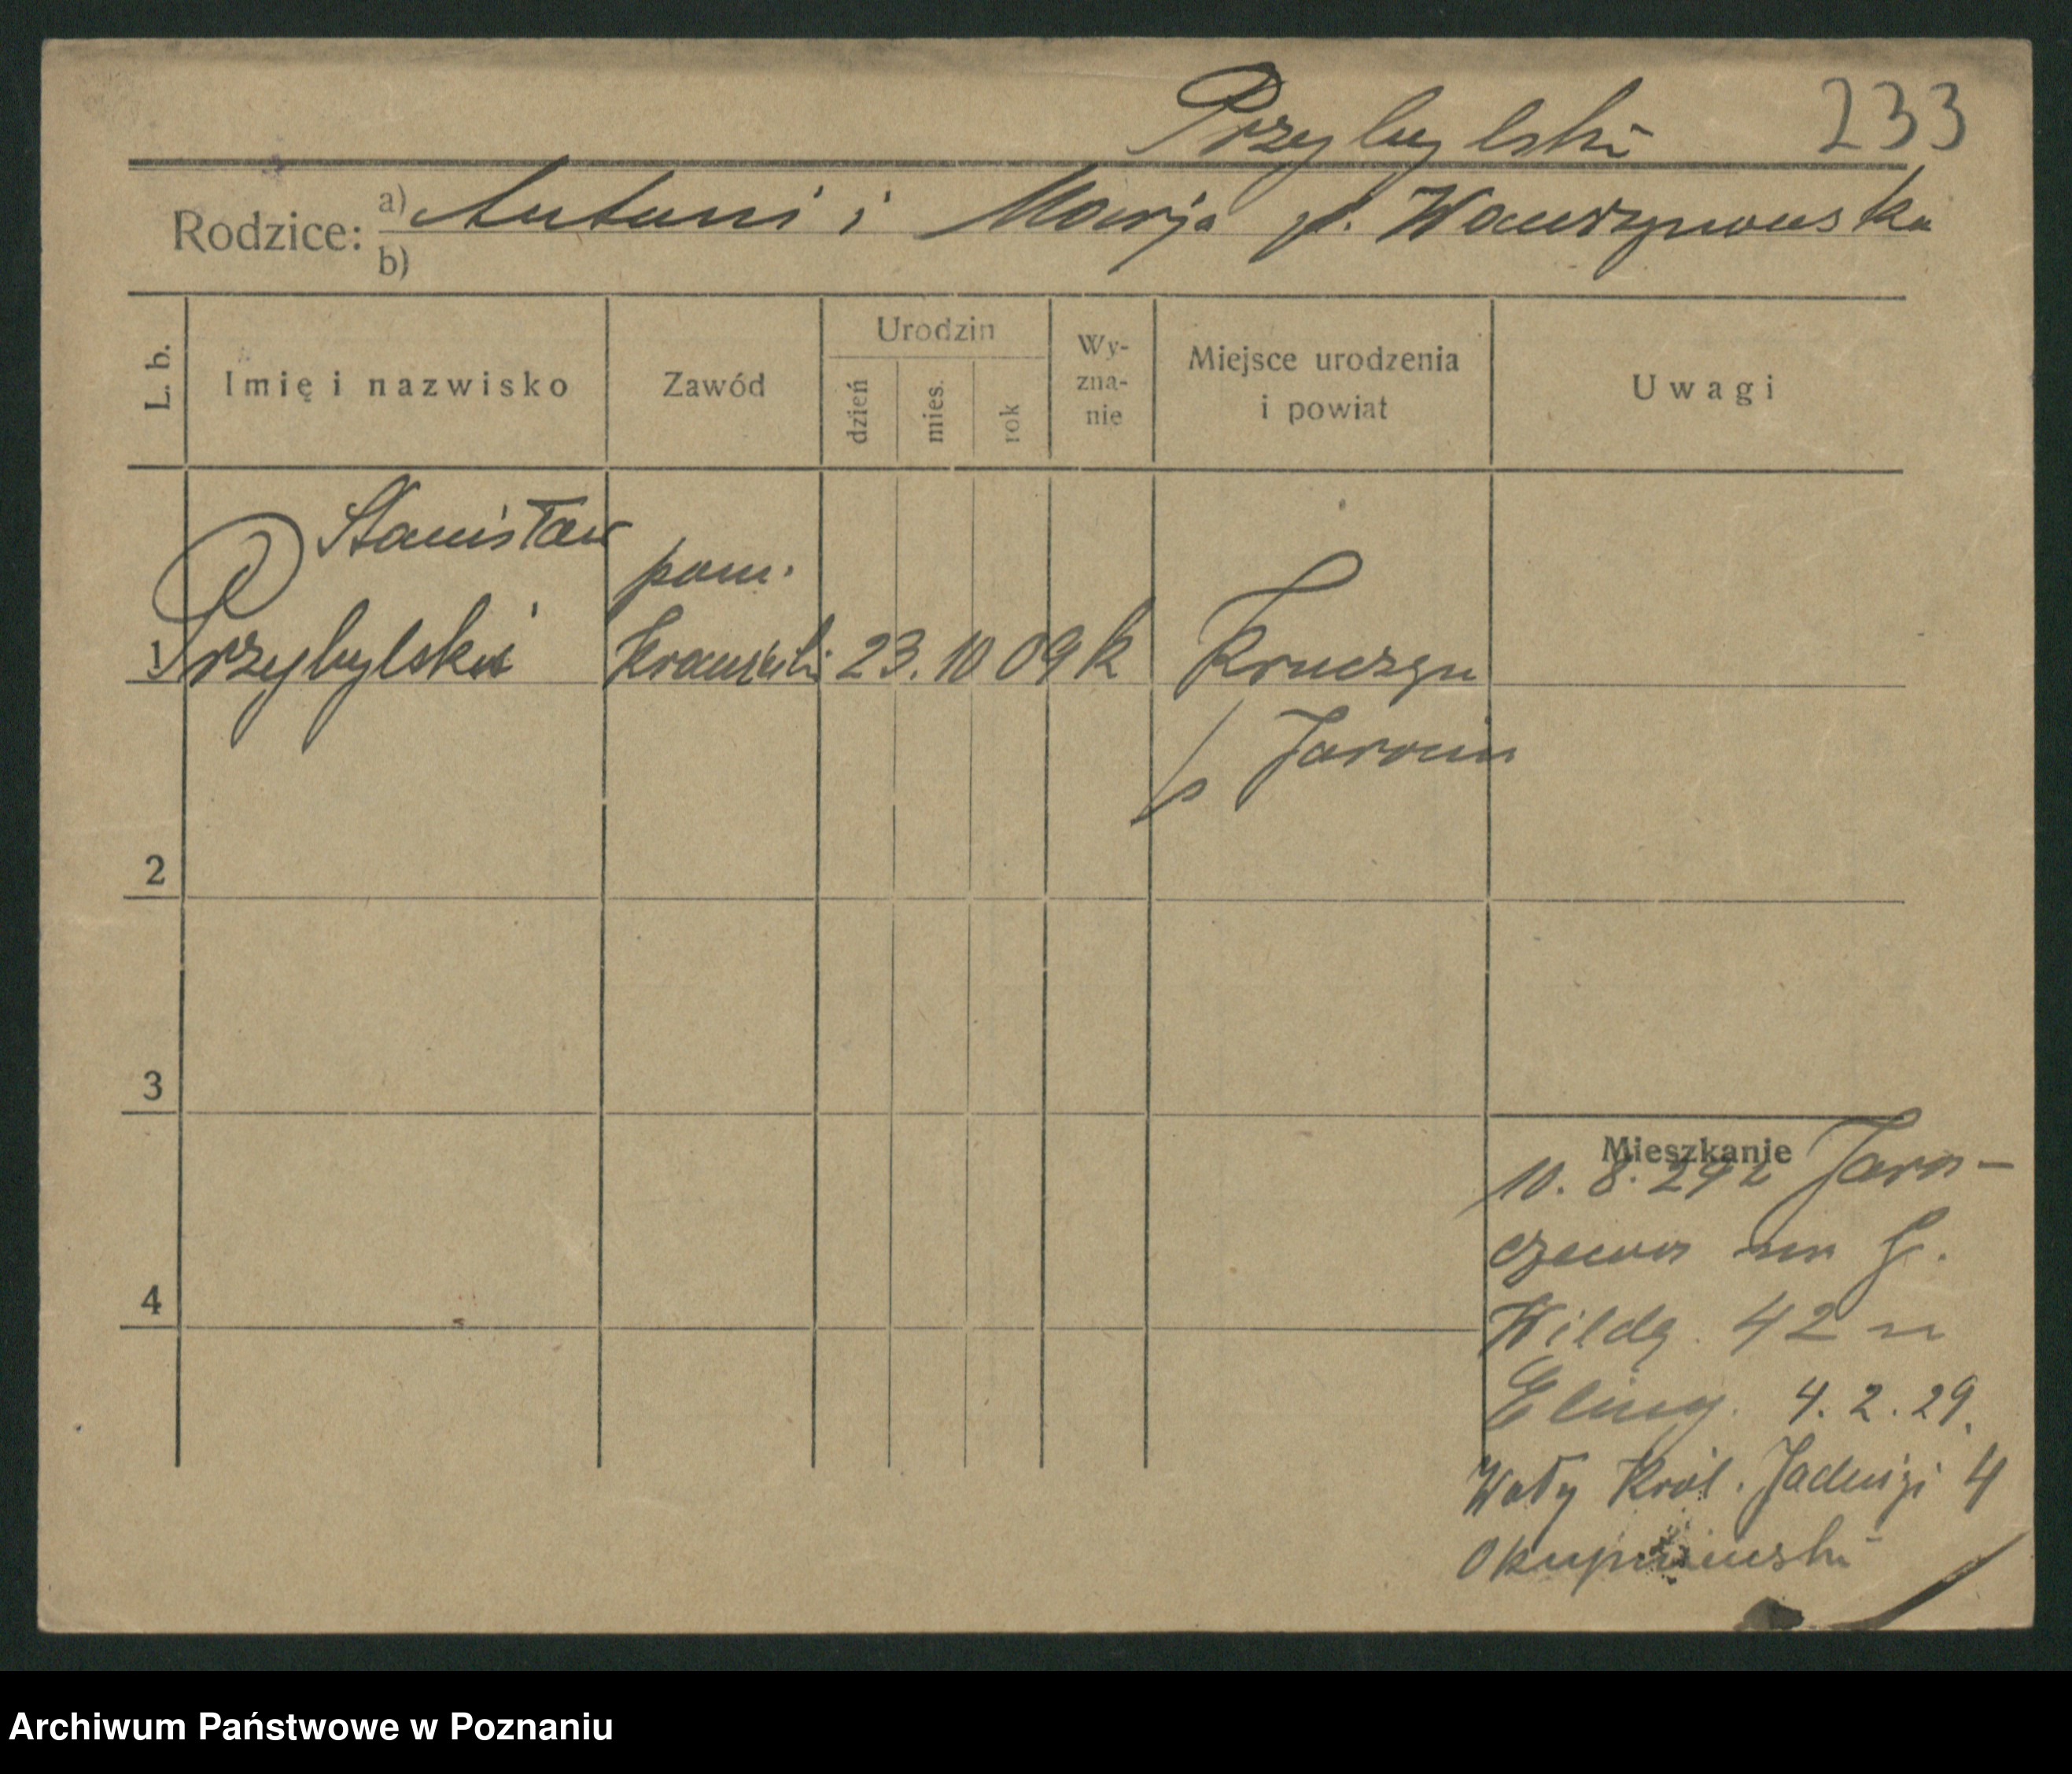 Przybylski 233
Rodzice: a) Antoni i Marja
b)
L. b.
Imię i nazwisko
Zawód
Urodzin
dzień
mies.
rok
Wy-
zna-
nie
Miejsce urodzenia
i powiat
Uwagi
Stanisław
pom.
1 Przybylski krawiecki 23. 10 09 k Kruczyn
p Jarocin
2
3
4
Mieszkanie
10. 8. 29 z Jaro-
czewo na G.
Wildą. 42 u
4. 2. 29.
Wały Król. Jadwigi 4
Archiwum Państwowe w Poznaniu